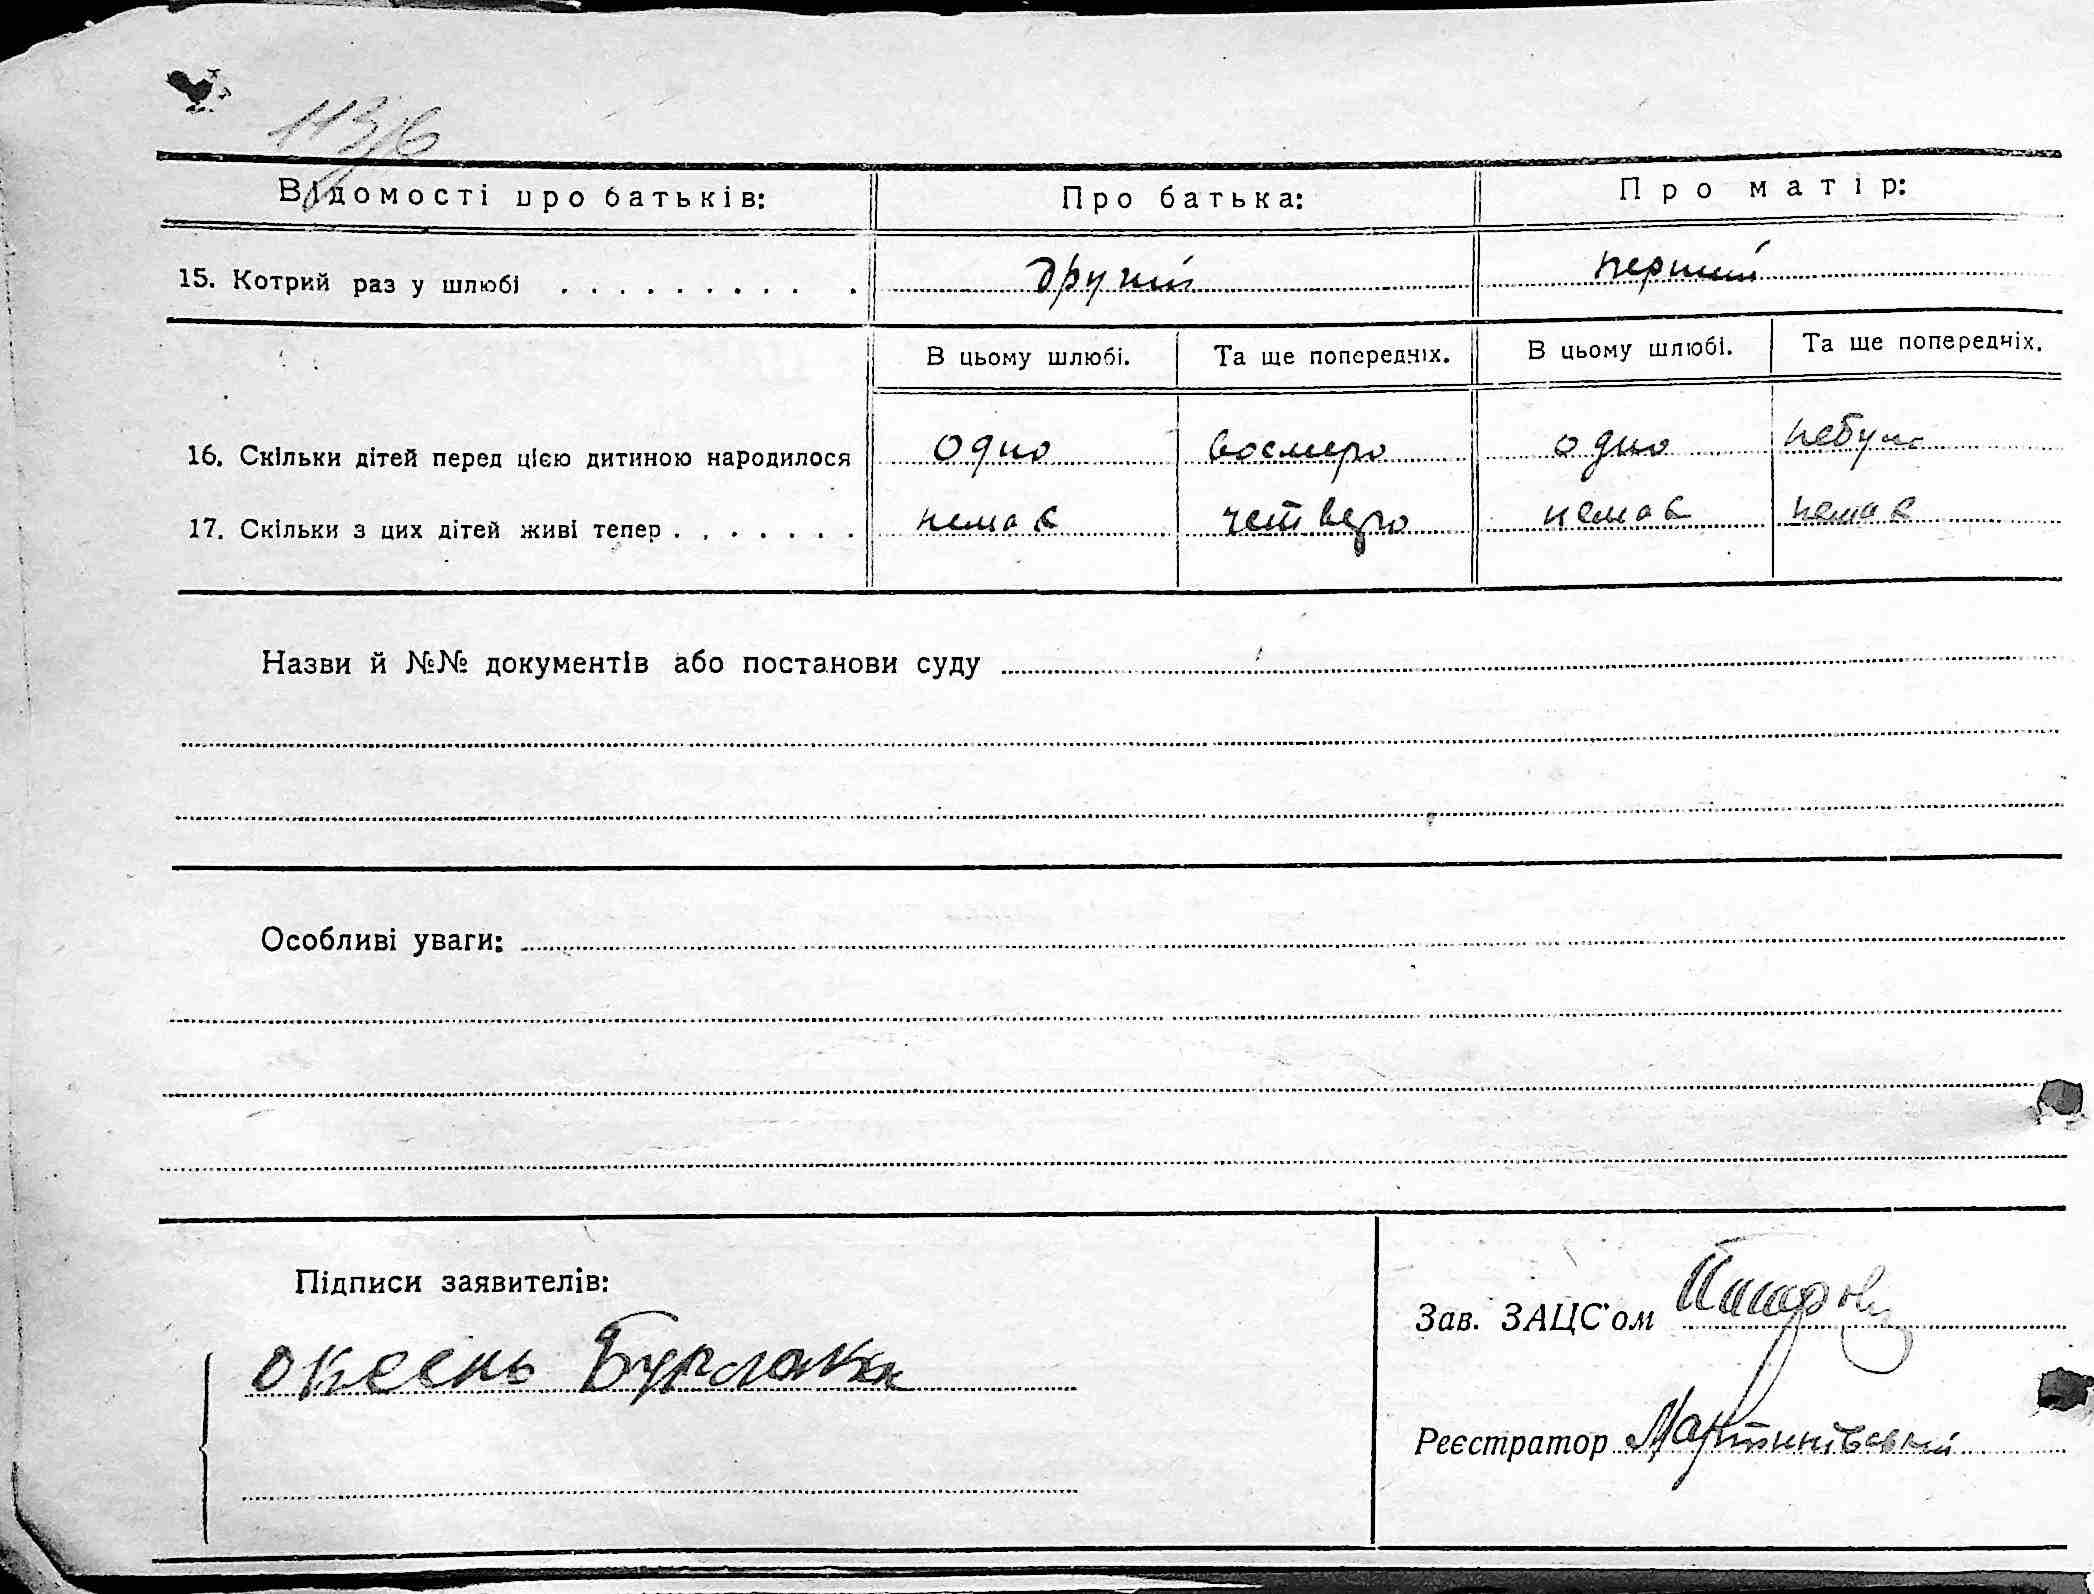 113/6
Відомості про батьків: Про батька: Про матір:
15. Котрий раз у шлюбі . . . . . . . . . . . другий перший
В цьому шлюбі. Та ще попередніх. В цьому шлюбі. Та ще попередніх.
16. Скільки дітей перед цією дитиною народилося одно восмеро одно небуло
17. Скільки з цих дітей живі тепер . . . . . . . немає четверо немає немає
Назви й №№ документів або постанови суду
Особливі уваги:
Підписи заявителів:
Зав. ЗАЦС'ом
Бурлака
Реєстратор Мартинівський